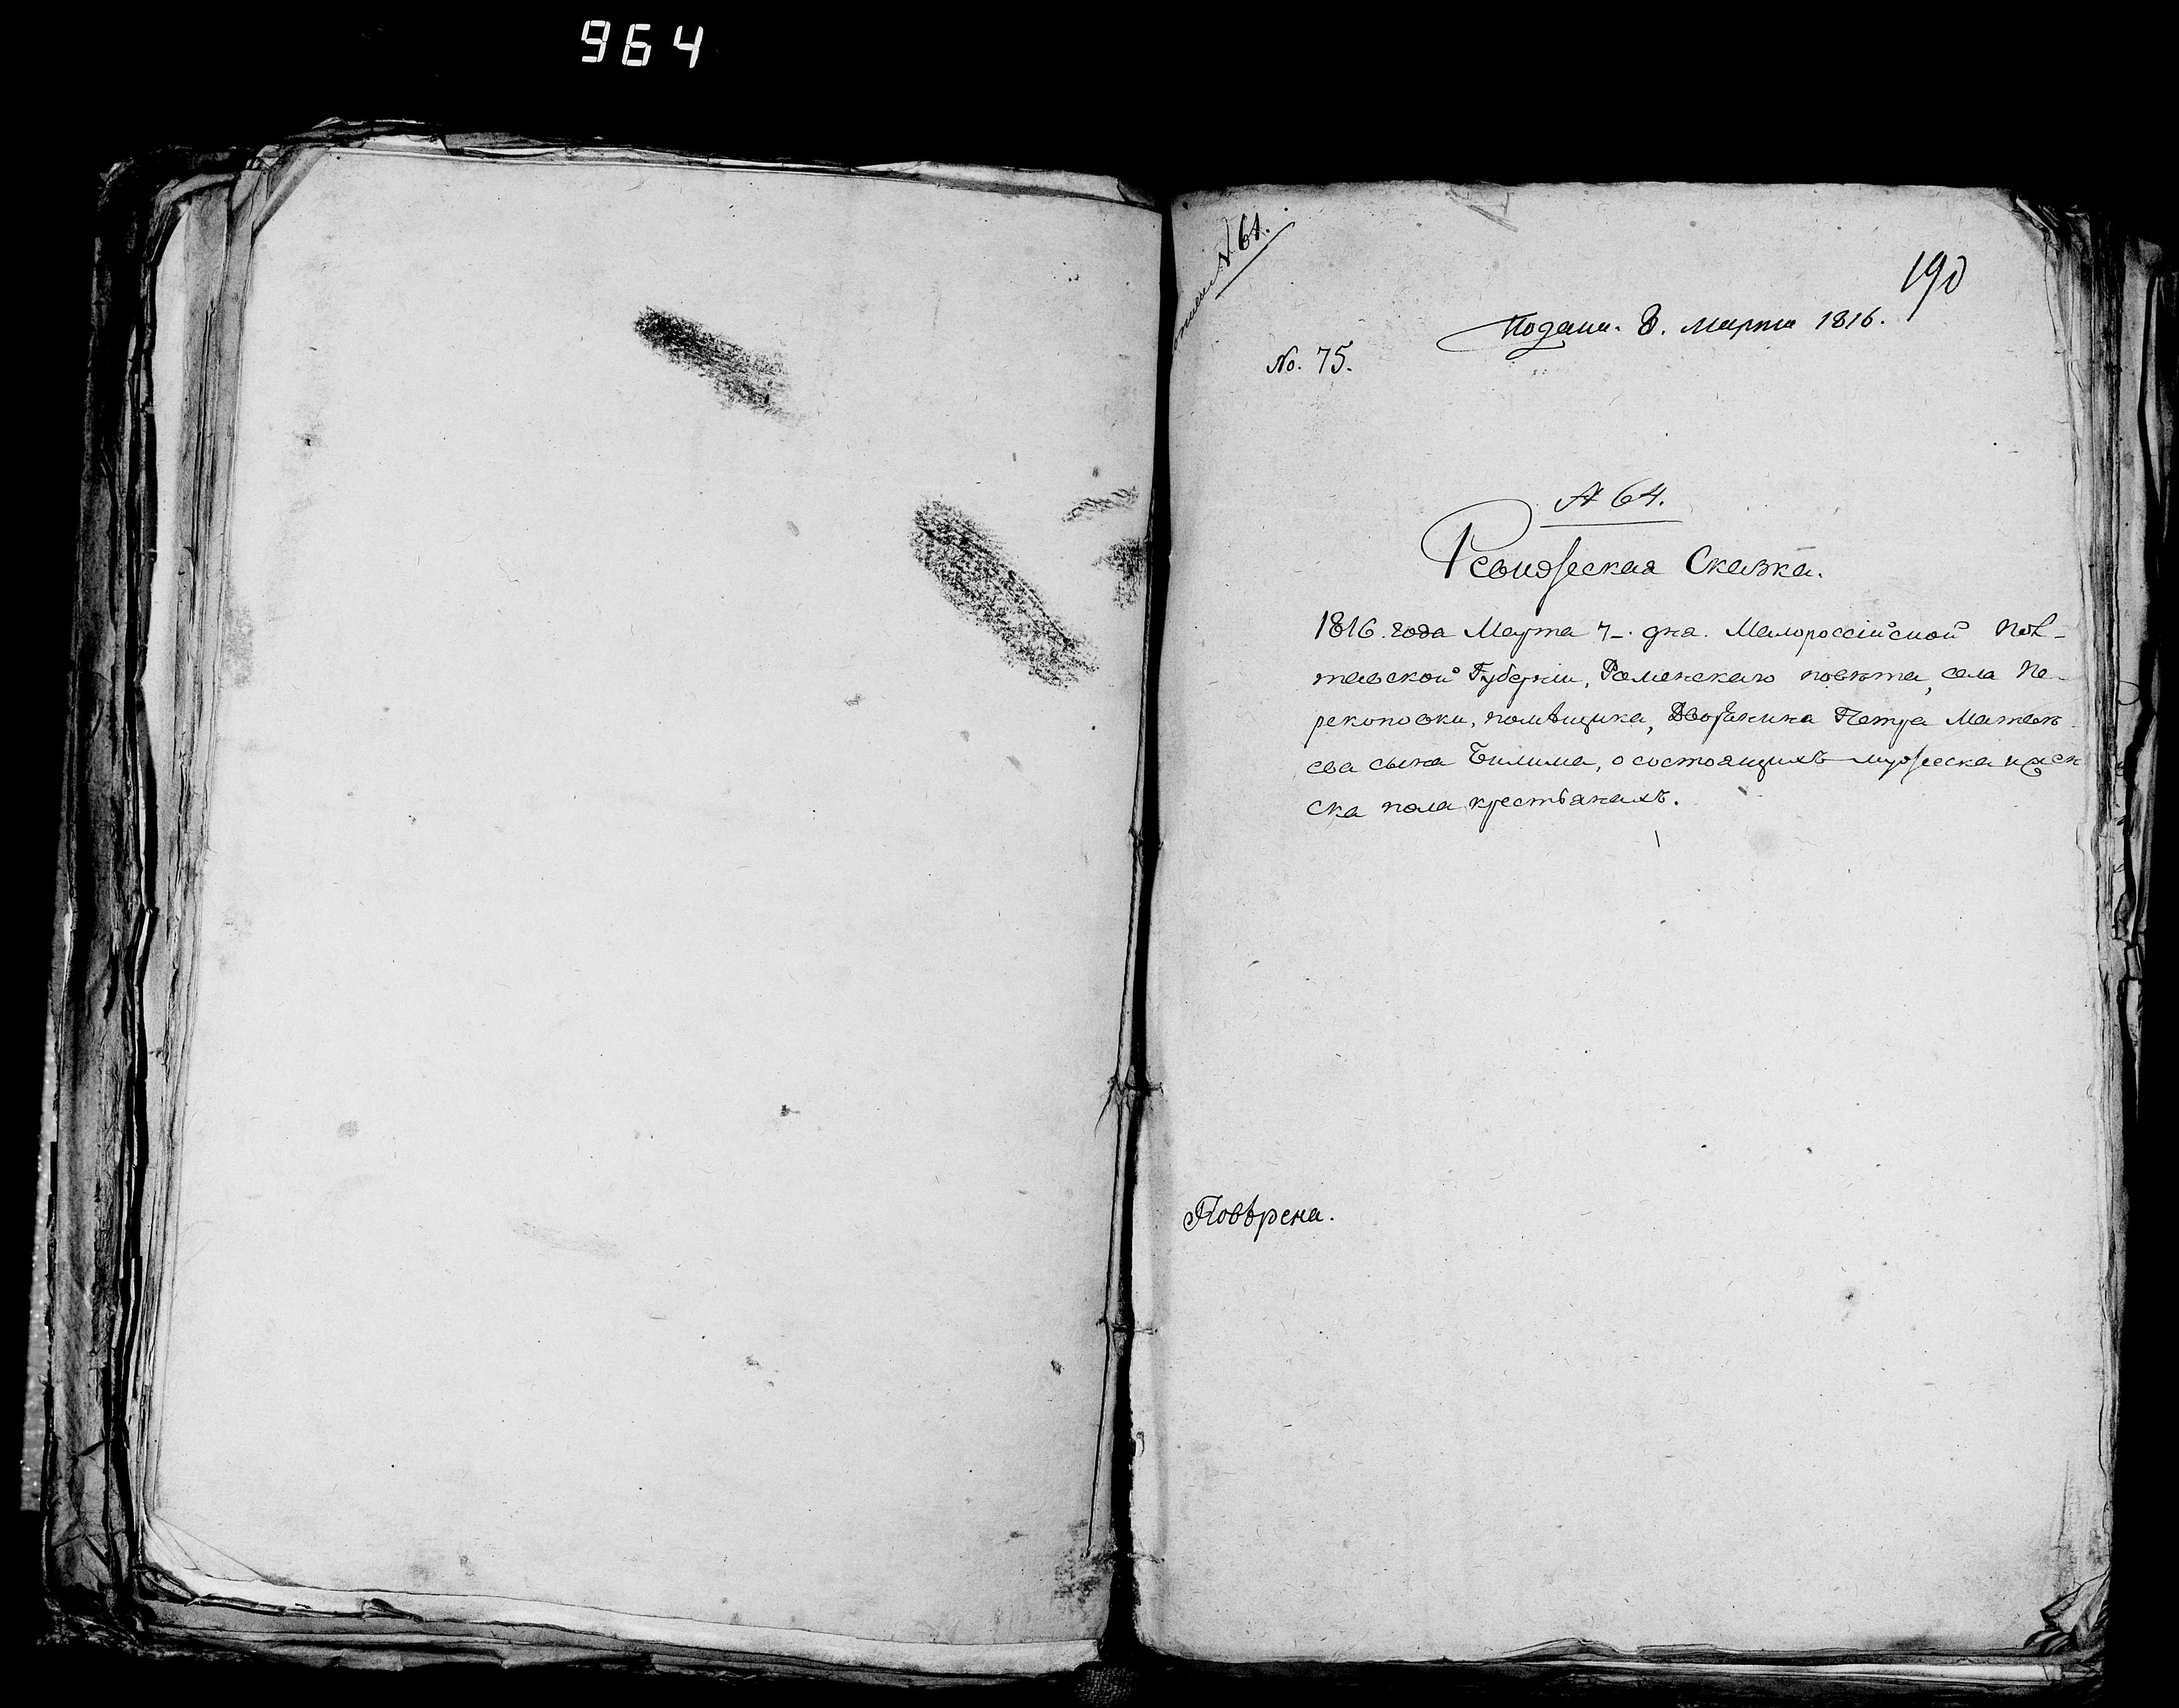 964
№ 61.
190
Подана. 8. марта 1816.
No. 75.
№ 64.
Ревизская Сказка.
1816. года Марта 7_. дня. Малороссійской Пол-
тавской Губерніи, Роменскаго повѣта, села Пе-
рекоповки, помѣщика, Дворянина Петра Матвѣ
ева сына Билима, о состоящихъ мужеска и жен
ска пола крестьянахъ.
Повѣрена.